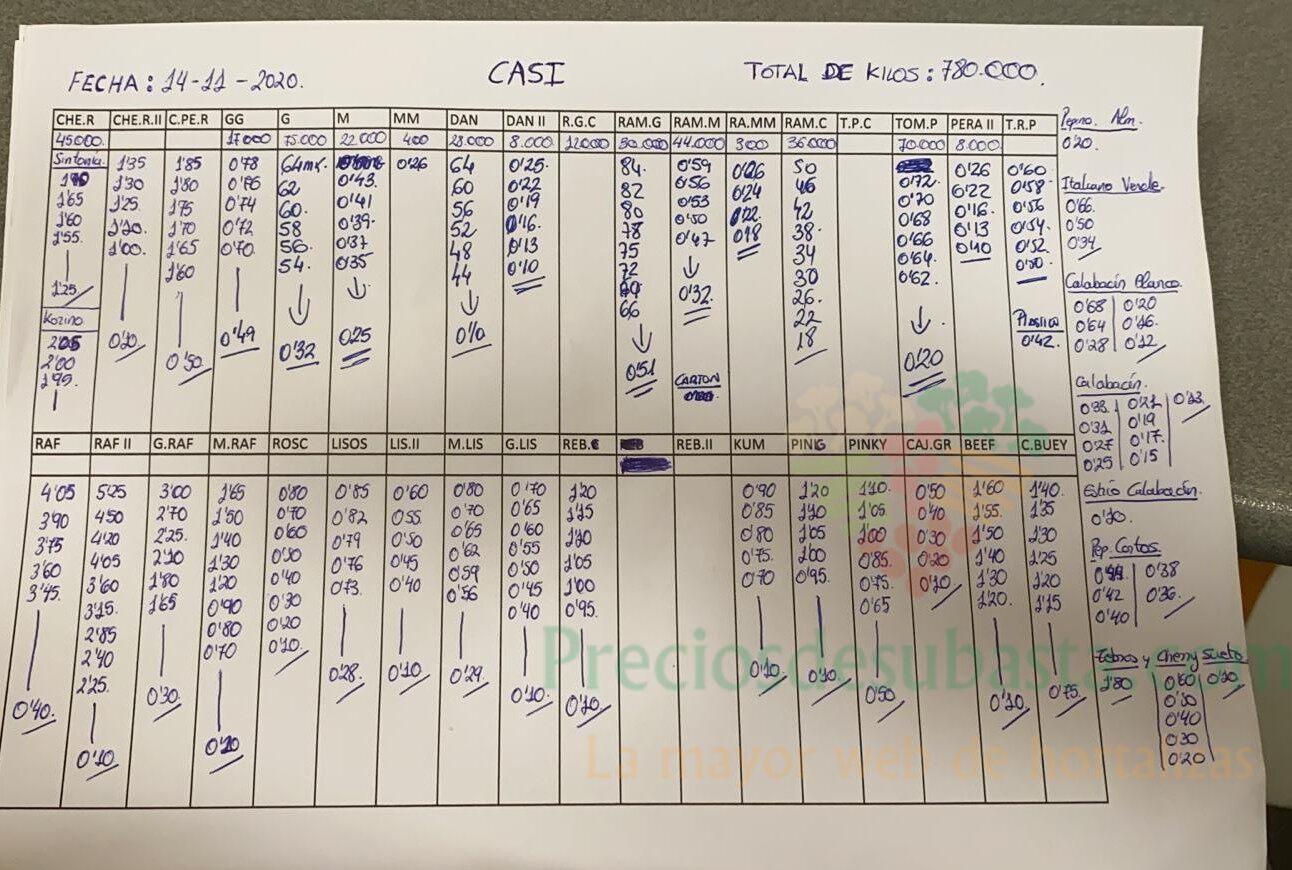 FECHA: 14-11-2020. CASI TOTAL DE KILOS: 780.000.
CHE.R CHE.R.II C.PE.R GG G M MM DAN DAN II R.G.C RAM.G RAM.M RA.MM RAM.C T.P.C TOM.P PERA II T.R.P
45000 17000 75.000 22.000 400 28.000 8.000 12.000 90.000 44.000 300 36000 70.000 8.000
Sintonia 1'35 1'85 0'78 64mr. 0'26 64 0'25 84 0'59 0'26 50 0'26 0'60
1'70 1'30 1'80 0'76 62 0'43 60 0'22 82 0'56 0'24 46 0'72 0'22 0'58
1'65 1'25 1'75 0'74 60 0'41 56 0'19 80 0'53 0'22 42 0'70 0'16 0'56
1'60 1'10 1'70 0'72 58 0'39 52 0'16 78 0'50 0'18 38 0'68 0'13 0'54
1'55 1'00 1'65 0'70 56 0'37 48 0'13 75 0'47 34 0'66 0'10 0'52
1'60 54 0'35 44 0'10 72 30 0'64 0'50
1'25 69 0'32 26 0'62
66 22
Kozino Plastico
2'05 0'20 0'50 0'49 0'32 0'25 0'10 0'51 18 0'20 0'42
2'00
1'95 CARTON
RAF RAF II G.RAF M.RAF ROSC LISOS LIS.II M.LIS G.LIS REB. REB.II KUM PING PINKY CAJ.GR BEEF C.BUEY
4'05 5'25 3'00 1'65 0'80 0'85 0'60 0'80 0'70 1'20 0'90 1'20 1'10 0'50 1'60 1'40
3'90 4'50 2'70 1'50 0'70 0'82 0'55 0'70 0'65 1'15 0'85 1'10 1'05 0'40 1'55 1'35
3'75 4'20 2'25 1'40 0'60 0'79 0'50 0'65 0'60 1'10 0'80 1'05 1'00 0'30 1'50 1'30
3'60 4'05 2'10 1'30 0'50 0'76 0'45 0'62 0'55 1'05 0'75 1'00 0'85 0'20 1'40 1'25
3'45 3'60 1'80 1'20 0'40 0'73 0'40 0'59 0'50 1'00 0'70 0'95 0'75 0'10 1'30 1'20
3'15 1'65 0'90 0'30 0'56 0'45 0'95 0'65 1'20 1'15
2'85 0'80 0'20 0'40
2'40 0'70 0'10
2'25
0'40 0'10 0'30 0'20 0'28 0'10 0'29 0'10 0'10 0'10 0'10 0'50 0'10 0'75
Pepino Alm.
0'20
Italiano Verde
0'66
0'50
0'34
Calabacín Blanco
0'68 0'20
0'64 0'16
0'28 0'12
Calabacín.
0'33 0'21 0'13
0'31 0'19
0'27 0'17
0'25 0'15
Calabacín.
0'10
Pep. Cortos
0'44 0'38
0'42 0'36
0'40
y Cherry Suelto
1'80 0'60 0'10
0'50
0'40
0'30
0'20
Preciosdesubasta.com
La mayor web de hortalizas